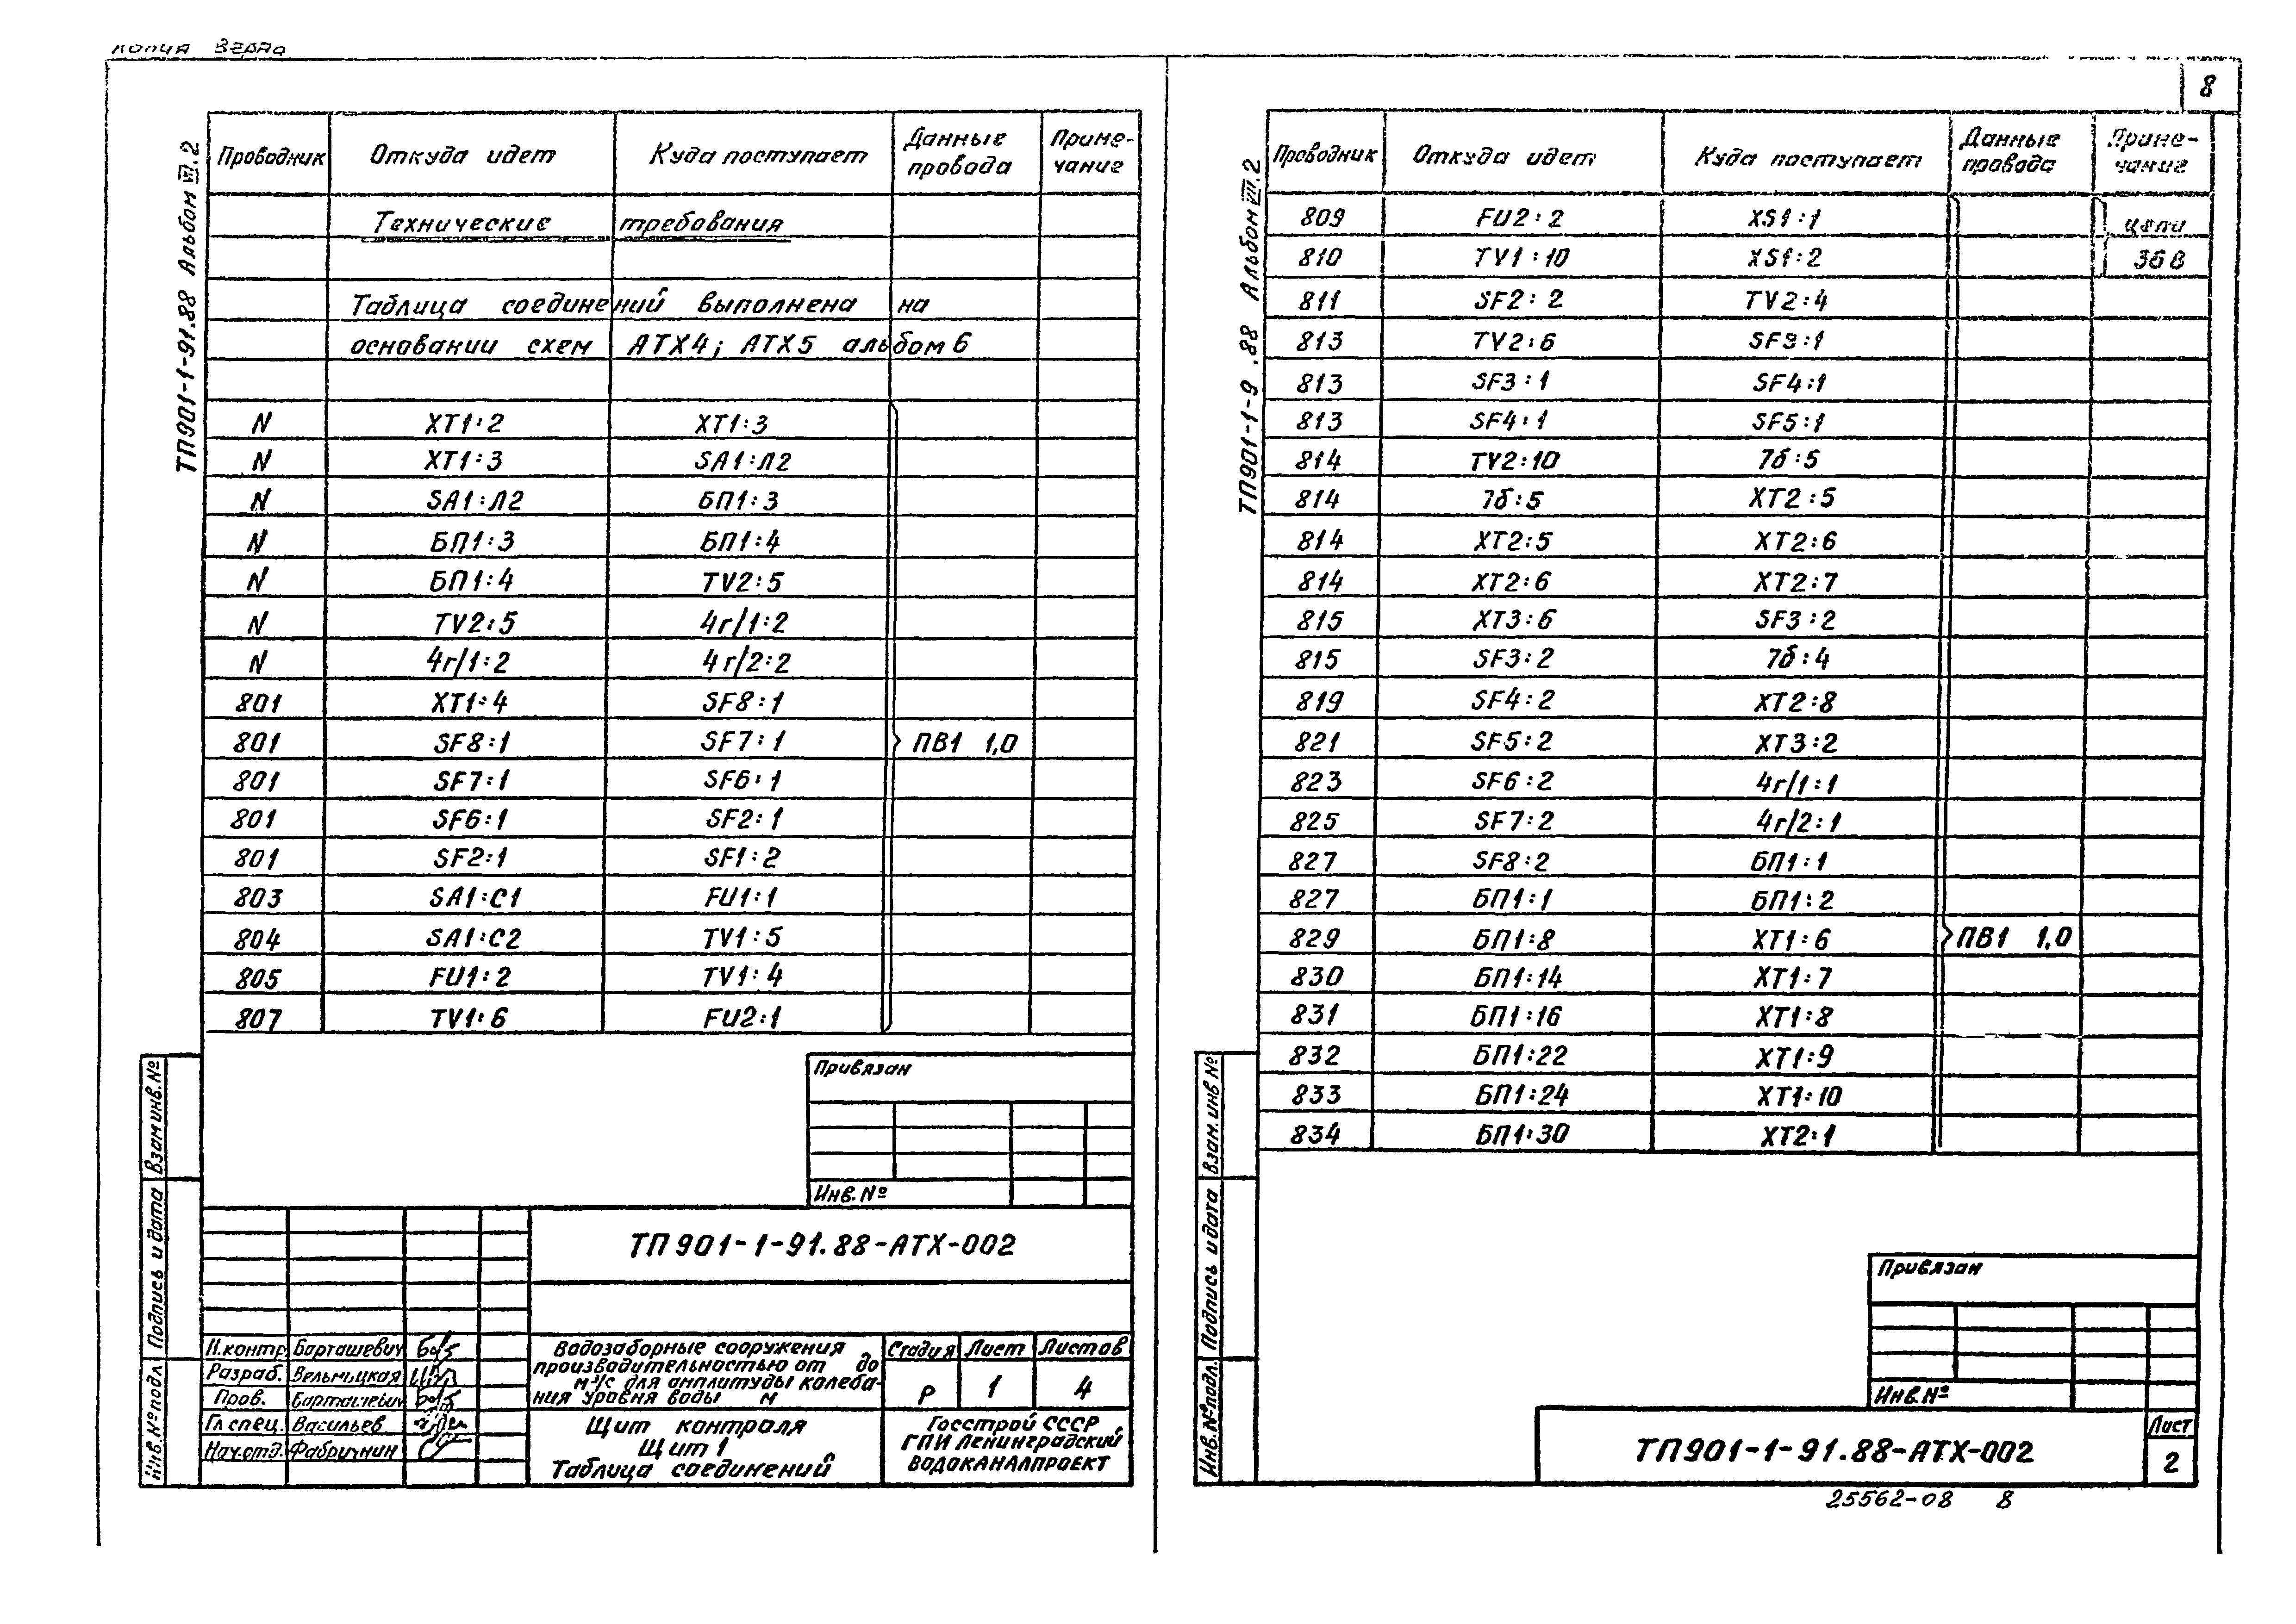 копия верна
8
ТП901-1-91.88 Альбом VII.2
Проводник Откуда идет Куда поступает Данные провода Приме-чание
Технические требования
Таблица соединений выполнена на
основании схем АТХ4; АТХ5 альбом 6
N XT1:2 XT1:3
N XT1:3 SA1:Л2
N SA1:Л2 БП1:3
N БП1:3 БП1:4
N БП1:4 TV2:5
N TV2:5 4г/1:2
N 4г/1:2 4г/2:2
801 XT1:4 SF8:1
801 SF8:1 SF7:1 ПВ1 1,0
801 SF7:1 SF6:1
801 SF6:1 SF2:1
801 SF2:1 SF1:2
803 SA1:C1 FU1:1
804 SA1:C2 TV1:5
805 FU1:2 TV1:4
807 TV1:6 FU2:1
Привязан
Инв.№
Взам инв.№
Подпись и дата
Инв.№подл.
ТП 901-1-91.88-АТХ-002
Н.контр. Барташевич
Разраб. Вельмицкая
Пров. Барташевич
Гл спец. Васильев
Нач.отд. Фабричнин
Водозаборные сооружения
производительностью от до
м³/с для амплитуды колеба-
ния уровня воды м
Стадия Лист Листов
Р 1 4
Щит контроля
Щит 1
Таблица соединений
Госстрой СССР
ГПИ Ленинградский
ВОДОКАНАЛПРОЕКТ
ТП901-1-9 .88 Альбом VII.2
Проводник Откуда идет Куда поступает Данные провода Приме-чание
809 FU2:2 XS1:1 цепи
810 TV1:10 XS1:2 36 В
811 SF2:2 TV2:4
813 TV2:6 SF3:1
813 SF3:1 SF4:1
813 SF4:1 SF5:1
814 TV2:10 7б:5
814 7б:5 XT2:5
814 XT2:5 XT2:6
814 XT2:6 XT2:7
815 XT3:6 SF3:2
815 SF3:2 7б:4
819 SF4:2 XT2:8
821 SF5:2 XT3:2
823 SF6:2 4г/1:1
825 SF7:2 4г/2:1
827 SF8:2 БП1:1
827 БП1:1 БП1:2
829 БП1:8 XT1:6 ПВ1 1,0
830 БП1:14 XT1:7
831 БП1:16 XT1:8
832 БП1:22 XT1:9
833 БП1:24 XT1:10
834 БП1:30 XT2:1
Взам.инв №
Подпись и дата
Инв.№подл.
Привязан
Инв.№
ТП901-1-91.88-АТХ-002
Лист
2
25562-08 8